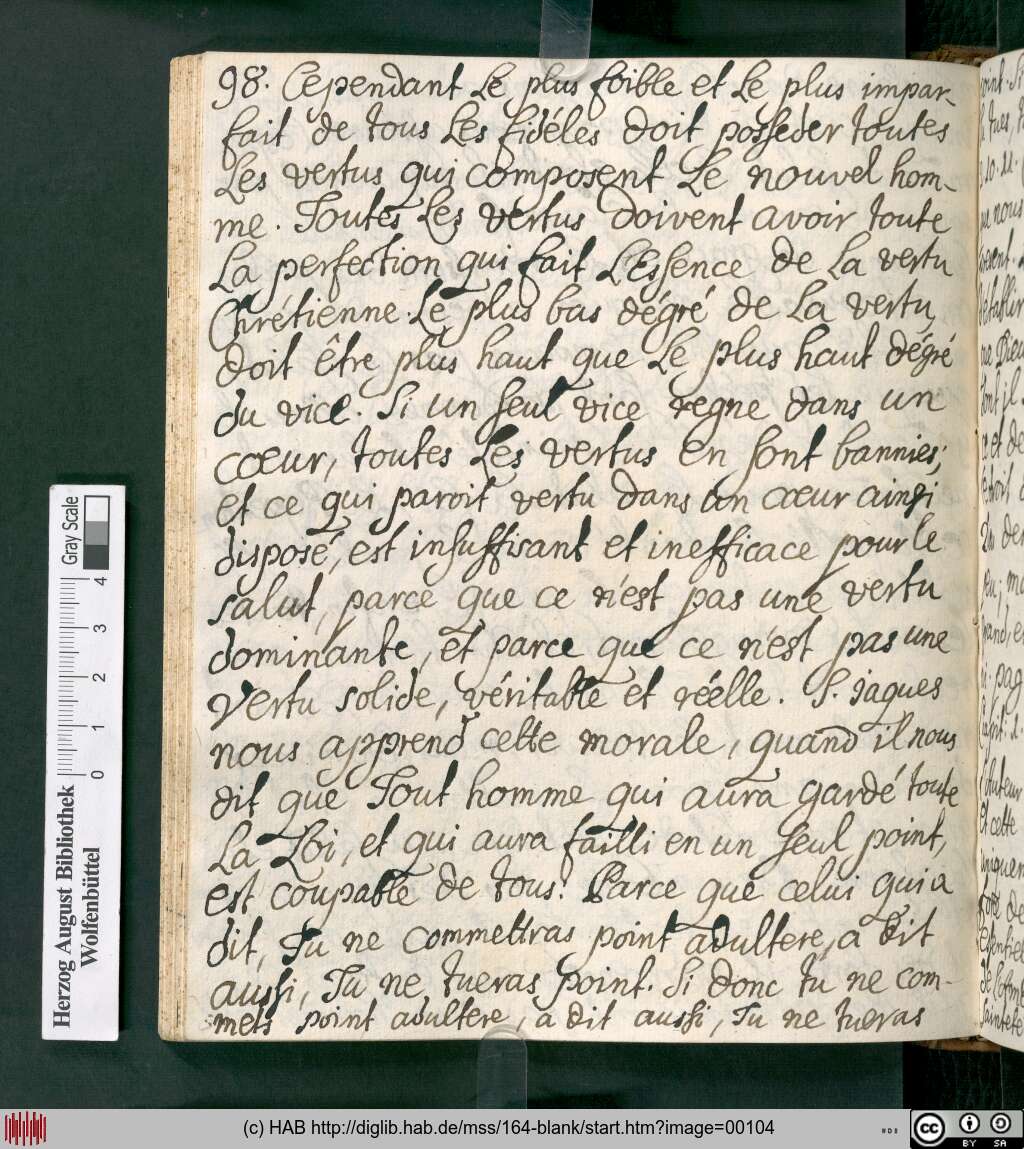 98. Cependant le plus foible et le plus impar-
fait de tous les fidéles doit posseder toutes
les vertus qui composent le nouvel hom-
me. Toutes les vertus doivent avoir toute
la perfection qui fait l'Essence de la vertu
Chrétienne. Le plus bas dégré de la vertu
doit être plus haut que le plus haut dégré
du vice. Si un seul vice regne dans un
cœur, toutes les vertus en sont bannies;
et ce qui paroit vertu dans un cœur ainsi
disposé, est insuffisant et inefficace pour le
salut, parce que ce n'est pas une vertu
dominante, et parce que ce n'est pas une
vertu solide, véritable et réelle. S. Jaques
nous apprend cette morale, quand il nous
dit que Tout homme qui aura gardé toute
la Loi, et qui aura failli en un seul point,
est coupable de tous: Parce que celui qui a
dit, Tu ne commettras point adultere, a dit
aussi, Tu ne tueras point. Si donc tu ne com-
mets point adultere, a dit aussi, Tu ne tueras
Herzog August Bibliothek
Wolfenbüttel
0 1 2 3 4
Gray Scale
(c) HAB http://diglib.hab.de/mss/164-blank/start.htm?image=00104
cc BY SA